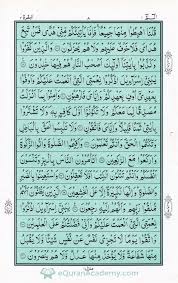 البقرة ٢
٨
الٓمّٓ ١
قُلْنَا اهْبِطُوْا مِنْهَا جَمِيْعًا فَاِمَّا يَاْتِيَنَّكُمْ مِّنِّىْ هُدًى فَمَنْ تَبِعَ
هُدَاىَ فَلَا خَوْفٌ عَلَيْهِمْ وَلَا هُمْ يَحْزَنُوْنَ وَالَّذِيْنَ كَفَرُوْا
وَكَذَّبُوْا بِاٰيٰتِنَآ اُولٰٓئِكَ اَصْحٰبُ النَّارِ هُمْ فِيْهَا خٰلِدُوْنَ
يٰبَنِىْٓ اِسْرَآءِيْلَ اذْكُرُوْا نِعْمَتِىَ الَّتِىْٓ اَنْعَمْتُ عَلَيْكُمْ وَاَوْفُوْا
بِعَهْدِىْٓ اُوْفِ بِعَهْدِكُمْ وَاِيَّاىَ فَارْهَبُوْنِ وَاٰمِنُوْا بِمَآ اَنْزَلْتُ
مُصَدِّقًا لِّمَا مَعَكُمْ وَلَا تَكُوْنُوْٓا اَوَّلَ كَافِرٍۢ بِهٖ وَلَا تَشْتَرُوْا
بِاٰيٰتِىْ ثَمَنًا قَلِيْلًا وَّاِيَّاىَ فَاتَّقُوْنِ وَلَا تَلْبِسُوا الْحَقَّ بِالْبَاطِلِ
وَتَكْتُمُوا الْحَقَّ وَاَنْتُمْ تَعْلَمُوْنَ وَاَقِيْمُوا الصَّلٰوةَ وَاٰتُوا الزَّكٰوةَ
وَارْكَعُوْا مَعَ الرّٰكِعِيْنَ اَتَاْمُرُوْنَ النَّاسَ بِالْبِرِّ وَتَنْسَوْنَ
اَنْفُسَكُمْ وَاَنْتُمْ تَتْلُوْنَ الْكِتٰبَ اَفَلَا تَعْقِلُوْنَ وَاسْتَعِيْنُوْا بِالصَّبْرِ
وَالصَّلٰوةِ وَاِنَّهَا لَكَبِيْرَةٌ اِلَّا عَلَى الْخٰشِعِيْنَ الَّذِيْنَ يَظُنُّوْنَ
اَنَّهُمْ مُّلٰقُوْا رَبِّهِمْ وَاَنَّهُمْ اِلَيْهِ رٰجِعُوْنَ يٰبَنِىْٓ اِسْرَآءِيْلَ اذْكُرُوْا
نِعْمَتِىَ الَّتِىْٓ اَنْعَمْتُ عَلَيْكُمْ وَاَنِّىْ فَضَّلْتُكُمْ عَلَى الْعٰلَمِيْنَ
وَاتَّقُوْا يَوْمًا لَّا تَجْزِىْ نَفْسٌ عَنْ نَّفْسٍ شَيْئًا وَّلَا يُقْبَلُ
مِنْهَا شَفَاعَةٌ وَّلَا يُؤْخَذُ مِنْهَا عَدْلٌ وَّلَا هُمْ يُنْصَرُوْنَ
eQuranAcademy.com